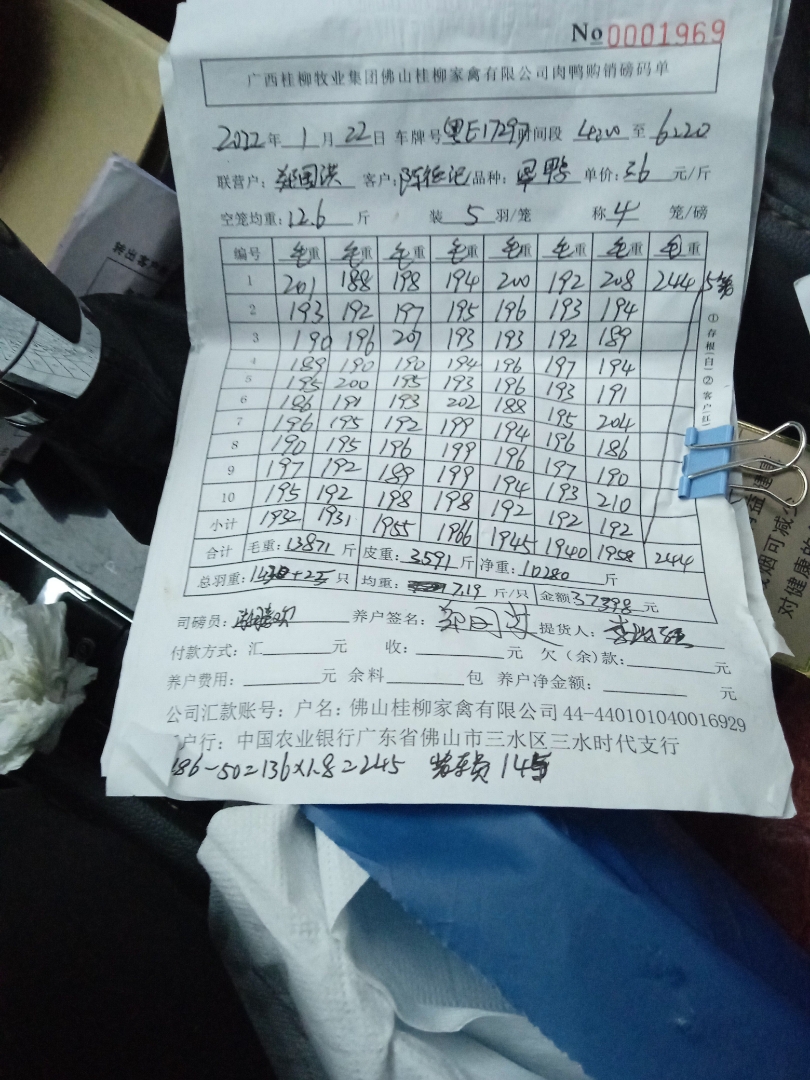 No 0001969
广西桂柳牧业集团佛山桂柳家禽有限公司肉鸭购销磅码单
2022年 1月 22日 车牌号 E1729 时间段 4200 至 6220
联营户: 客户: 陈 记 品种: 鸭 单价: 3.6 元/斤
空笼均重: 12.6 斤 装 5 羽/笼 称 4 笼/磅
编号 毛重 毛重 毛重 毛重 毛重 毛重 毛重 毛重
1 201 188 198 194 200 192 208 244 5笼
2 193 192 197 195 196 193 194
3 190 196 207 193 193 192 189
4 189 190 190 194 196 197 194
5 195 200 195 193 196 193 191
6 186 191 193 202 188 195 204
7 196 195 192 199 194 196 186
8 190 195 196 199 196 197 190
9 197 192 189 199 194 193 210
10 195 192 198 198 192 192 192
小计 1932 1931 1955 1966 1945 1940 1958 244
合计 毛重: 13871 斤 皮重: 3591 斤 净重: 10280 斤
总羽重: 只 均重: 7.19 斤/只 金额 37398 元
司磅员: 养户签名: 提货人:
付款方式: 汇 元 收: 元 欠(余)款: 元
养户费用: 元 余料 包 养户净金额: 元
公司汇款账号: 户名: 佛山桂柳家禽有限公司 44-440101040016929
户行: 中国农业银行广东省佛山市三水区三水时代支行
186-50=136×1.8=245
①存根(白) ②客户(红)
转出客户
对健康